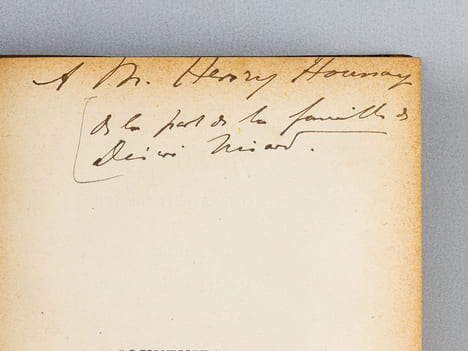 A M. Henry Houssay
de la part de la famille de
Désiré Nisard.